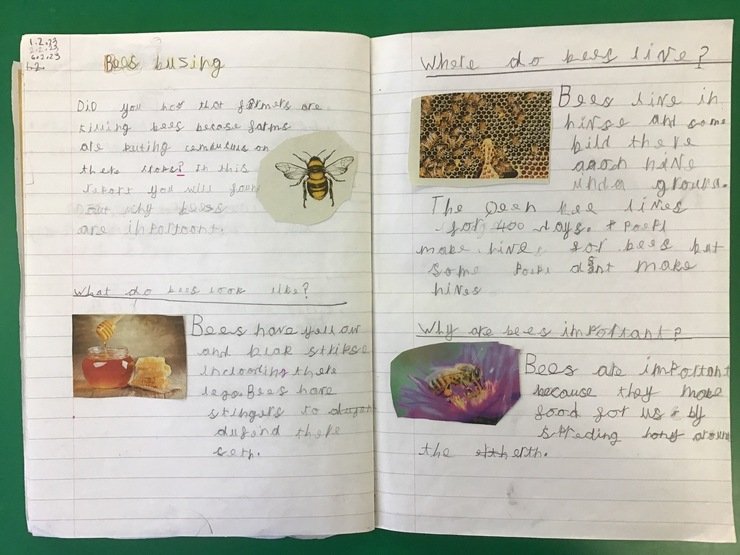 1.2.23
2.2.23
6.2.23
Bees busing
Did you not that farmers are
killing bees becose farms
are puting cemducuss on
there crops? In this
report you will foun
out why bees
are inportoont.
What do bees look like?
Bees have yellow
and blak strikse
incloording there
legs. Bees have
stingers to
dufind there
serp.
Where do bees live?
Bees live in
hivse and some
bild there
own hive
unda ground.
The Qeen bee lives
for 400 days.
make hives for bees but
some don't make
hives
Why are bees important?
Bees are important
because they make
food for us & by
spreding hony around
the erth.